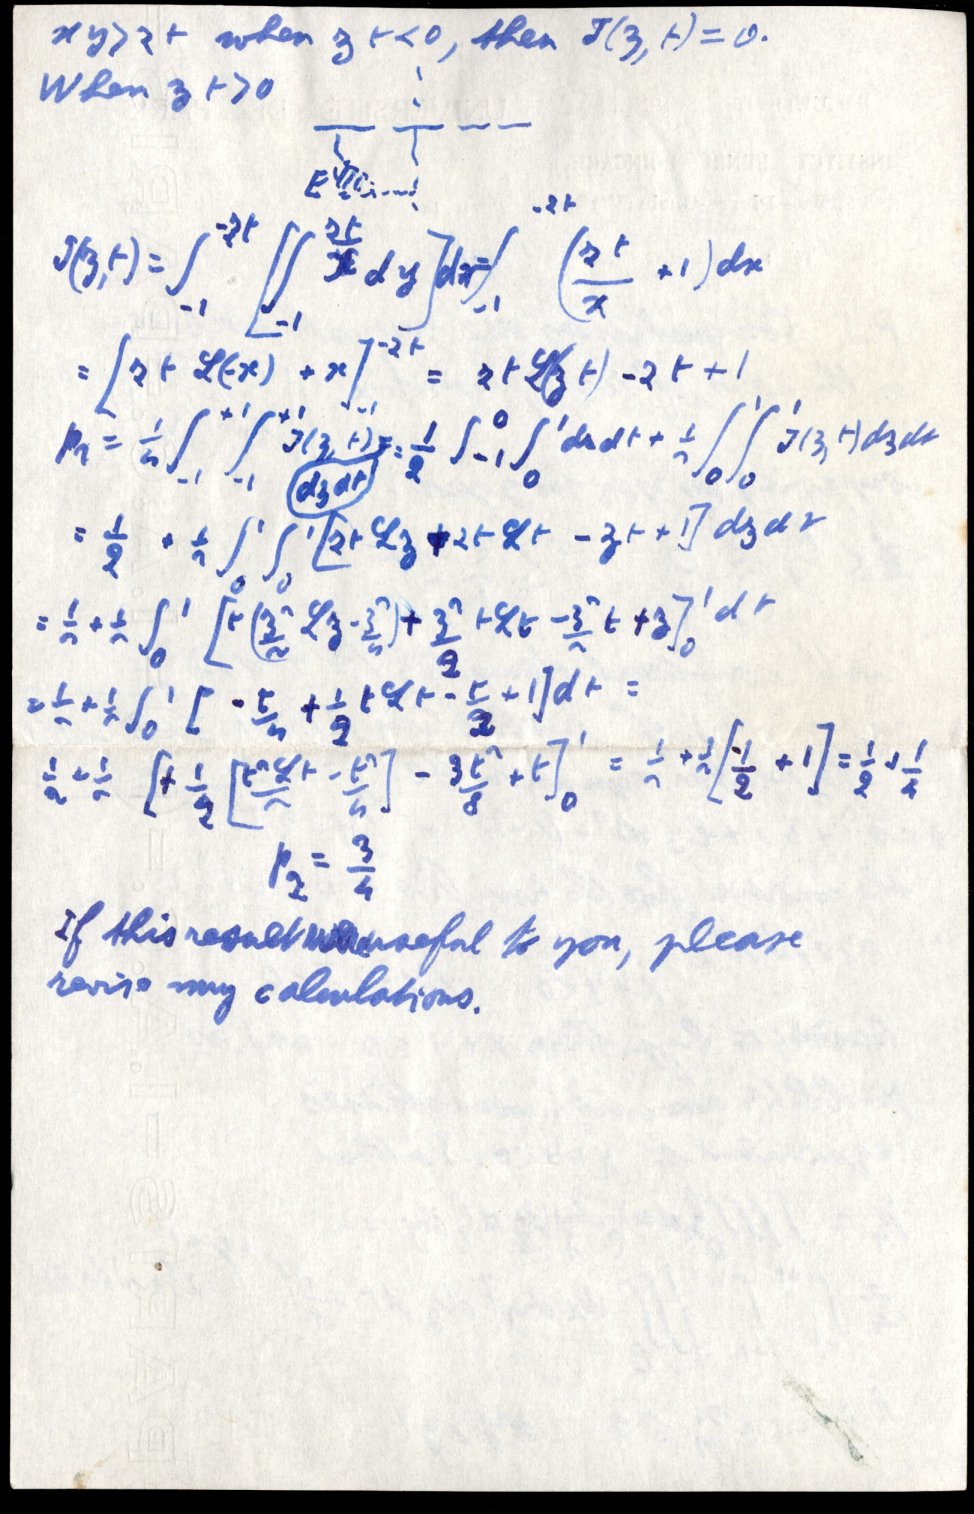 xy > zt when zt < 0, then J(z,t) = 0.
When zt > 0
J(z,t) = ∫_{-1}^{-zt} [∫_{-1}^{zt/x} dy] dx = ∫_{-1}^{-zt} (zt/x + 1) dx
= [zt L(-x) + x]_{-1}^{-zt} = zt L(zt) - zt + 1
p_2 = 1/2 ∫_{-1}^{+1} ∫_{-1}^{+1} J(z,t) dz dt = 1/2 ∫_{-1}^{0} ∫_{0}^{1} dz dt + 1/2 ∫_{0}^{1} ∫_{0}^{1} J(z,t) dz dt
= 1/2 + 1/2 ∫_0^1 ∫_0^1 [zt Lz + zt Lt - zt + 1] dz dt
= 1/2 + 1/2 ∫_0^1 [t (z²/2 Lz - z²/4) + z²/2 t Lt - z²/2 t + z]_0^1 dt
= 1/2 + 1/2 ∫_0^1 [ - t/4 + 1/2 t Lt - t/2 + 1] dt =
1/2 + 1/2 [+ 1/2 [t²/2 Lt - t²/4] - 3t²/8 + t]_0^1 = 1/2 + 1/2 [-1/2 + 1] = 1/2 + 1/4
p_2 = 3/4
If this result useful to you, please
revise my calculations.